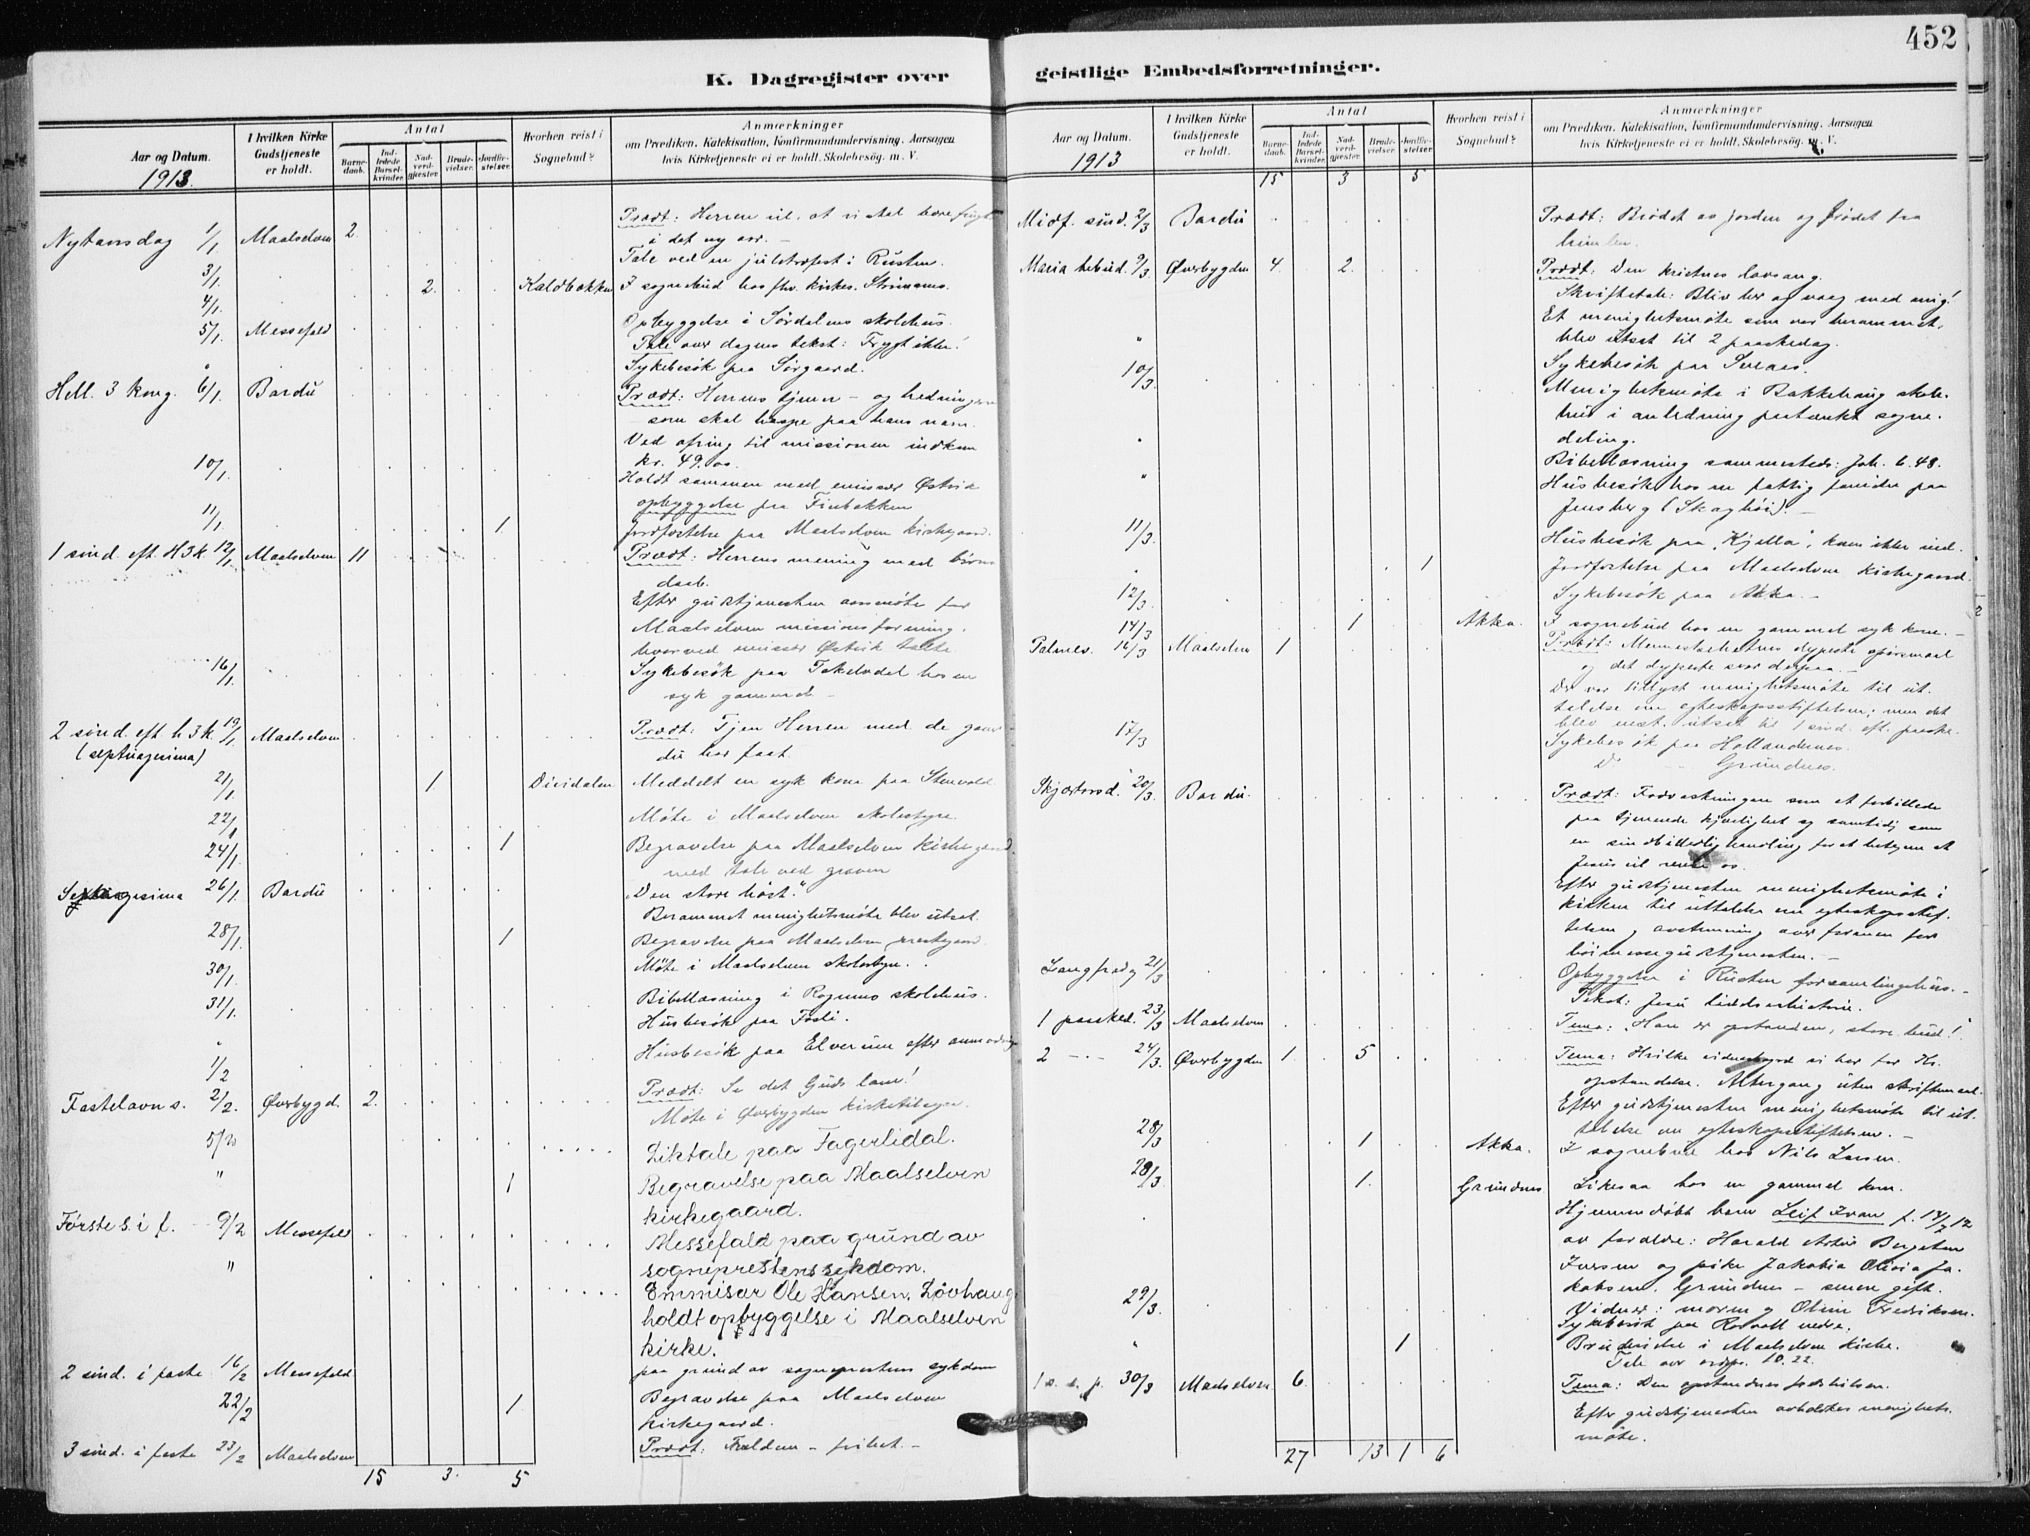 452
K. Dagregister over
geistlige Embedsforretninger.
Aar og Datum.
1913.
I hvilken Kirke
Gudstjeneste
er holdt.
Antal
Barne-
daab.
Ind-
ledede
Barsel-
kvinder.
Nad-
verd-
gjæster.
Brude-
vielser.
Jordfæ-
stelser.
Hvorhen reist i
Sognebud?
Anmærkninger
om Prædiken. Katekisation, Konfirmandundervisning. Aarsagen
hvis Kirketjeneste ei er holdt. Skolebesøg. m. V.
Nytaarsdag 1/1 Maalselven 2. Præd.: Herren vil, at vi skal bære frugt
i det ny aar. –
3/1. Tale ved en juletræfest i Rusten.
4/1. 2. Kaldbakken I sognebud hos fhv. kirkes.
5/1 Messefald Opbyggelse i Sørdalens skolehus.
Tale over dagens tekst: Frygt ikke!
" Sykebesøk paa Sørgaard.
Hell. 3 kong. 6/1. Bardu Præd.: Herrens tjener – og hedningene
som skal haape paa hans navn.
Ved ofring til missionen indkom
kr. 49.00
10/1. Holdt sammen med emissær Østvik
opbyggelse paa Finbakken
11/1. 1 Jordfæstelse paa Maalselven kirkegaard.
1 sønd. eft. H3k. 12/1. Maalselven 11 Præd.: Herrens mening med barne
daab.
Efter gudstjenesten aarsmøte for
Maalselven missionsforening,
hvorved emissær Østvik talte.
16/1. Sykebesøk paa Takelvdal hos en
syk gammel –
2 sønd. eft. h. 3 k. 19/1. Maalselven Præd.: Tjen Herren med de gaver
(septuagesima) du har faat.
21/1. 1 Dividalen Meddelt en syk kone paa Stenvold.
22/1 Møte i Maalselven skolestyre.
24/1. 1 Begravelse paa Maalselven kirkegaard.
med tale ved graven
Sexagesima 26/1. Bardu „Den store høst."
Berammet menighetsmøte blev utsat.
28/1. 1 Begravelse paa Maalselven
30/1. Møte i Maalselven skolestyre.
31/1. Bibellæsning i Rognmo skolehus.
Husbesøk paa Fosli.
1/2 Husbesøk paa Elverum efter anmodning
Fastelavns. 2/2. Øverbygd. 2. Præd.: Se det Guds lam!
Møte i Øverbygden kirketilsyn.
5/2 Liktale paa Fagerlidal.
" 1 Begravelse paa Maalselven
kirkegaard.
Første s. i f. 9/2 Messefald Messefald paa grund av
sogneprestens sykdom.
" Emmisær Ole Hansen, Løvhaug
holdt opbyggelse i Maalselven
kirke.
2 sønd. i faste 16/2 Messefald paa grund av sogneprestens sykdom
22/2 1 Begravelse paa Maalselven
kirkegaard.
3 sønd. i faste 23/2 Maalselven Præd.: Trældom – frihet. –
15 3. 5
Aar og Datum.
1913
I hvilken Kirke
Gudstjeneste
er holdt.
Antal
Barne-
daab.
Ind-
ledede
Barsel-
kvinder.
Nad-
verd-
gjæster.
Brude-
vielser.
Jordfæ-
stelser.
Hvorhen reist i
Sognebud?
Anmærkninger
om Prædiken. Katekisation, Konfirmandundervisning. Aarsagen
hvis Kirketjeneste ei er holdt. Skolebesøg. m. V.
15 3 5
Midf. sønd. 2/3 Bardu Præd.: Brødet av jorden og brødet fra
himlen.
Maria bebud. 9/3. Øverbygden 4. 2. Præd.: Den kristnes lovsang.
Skriftetale: Bliv her og vaag med mig!
" Et menighetsmøte som var berammet,
blev utsat til 2 paaskedag.
10/3. Sykebesøk paa
Menighetsmøte i Bakkehaug skole-
hus i anledning paatænkt sogne-
deling.
" Bibellæsning sammesteds: Joh. 6.48.
" Husbesøk hos en fattig familie paa
Jensberg (Skoghøi). –
11/3. Husbesøk paa „Kjella", kom ikke ind.
" 1 Jordfæstelse paa Maalselven kirkegaard.
12/3. Sykebesøk paa Akka. –
14/3 1 Akka. I sognebud hos en gammel syk kone. –
Palmes. 16/3 Maalselven 1 Præd.: Menneskehetens dypeste spørsmaal
og det dypeste svar derpaa. –
Der var tillyst menighetsmøte til ut-
talelse om egteskapsstiftelsen; men det
blev utsat til 1 sønd. eft. paaske.
17/3 Sykebesøk paa Hollandernes.
D. Grundnes.
Skjærtorsd. 20/3. Bardu. Præd.: Fodvaskningen som et forbillede
paa tjenende kjærlighet og samtidig som
en sindbilledlig handling for at betegne at
Jesus vil rense os.
Efter gudstjenesten menighetsmøte i
kirken til uttalelse om egteskapsstif-
telsen og avstemning over formen for
høimessegudstjenesten. –
Langfredag 21/3 Opbyggelse i Rusten forsamlingshus. –
Tekst: Jesu lidelseshistorie.
1 paasked. 23/3 Maalselven Tema: „Han er opstanden, store bud!"
2 – " – 24/3. Øverbygden 1. 5 Tema: Hvilke vidnesbyrd vi har for Hs.
opstandelse. Altergang uten skriftemaal.
Efter gudstjenesten menighetsmøte til ut-
talelse om egteskapsstiftelsen. –
28/3 1 Akka. I sognebud hos Nils Larsen.
28/3. 1. Grundnes Likesaa hos en gammel kone.
Hjemmedøbt barn Leif Ivar f. 14/7 12
av forældre: Harald Artur Bergeton
Iversen og pike Jakobia Olivia Ja-
kobsen, Grundnes – senere gift.
Vidner: moren og Oline Fredriksen.
29/3. Sykebesøk paa Rosvoll nedre.
" 1 Brudevielse i Maalselven kirke.
Tale over ordspr. 10.22.
1 s. e. p. 30/3 Maalselven 6. Tema: Den opstandnes fredshilsen.
Efter gudstjenesten avholdtes menighets-
møte.
27 13 1 6